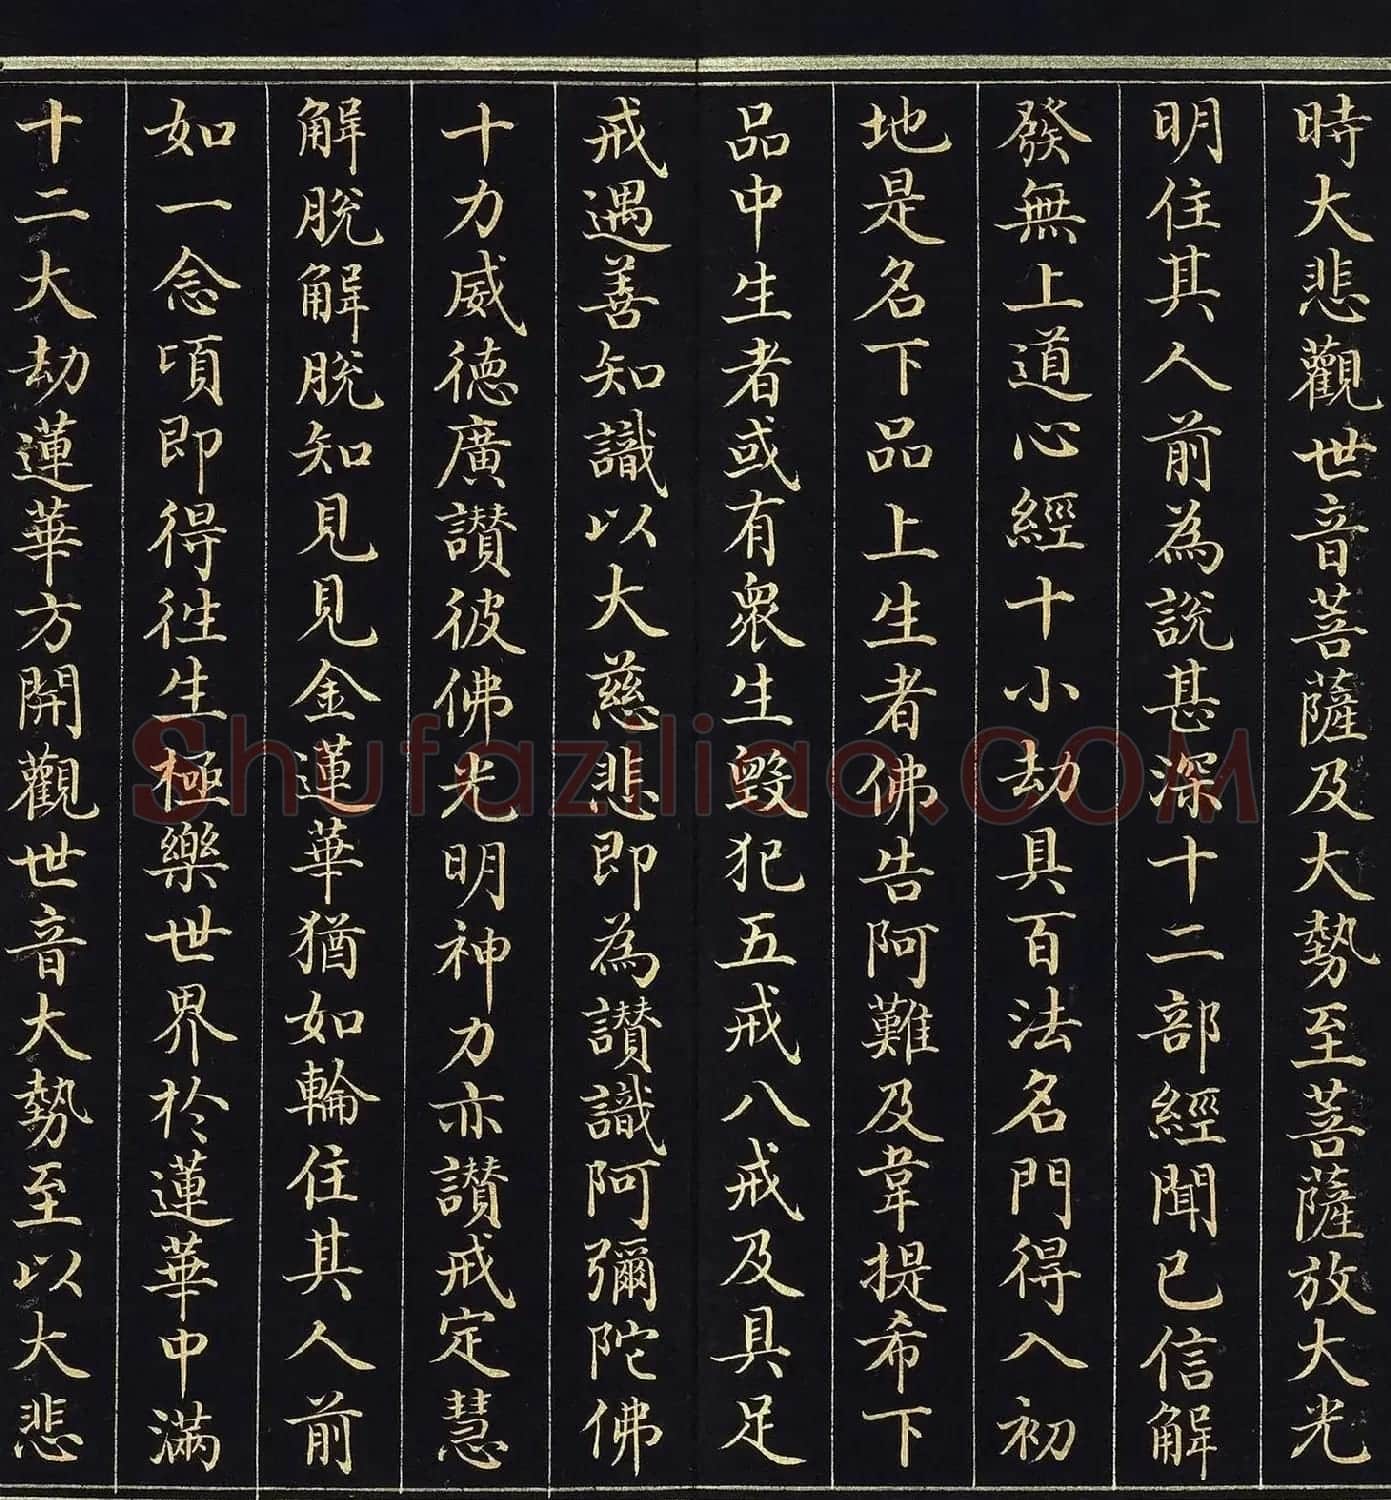 時大悲觀世音菩薩及大勢至菩薩放大光
明住其人前為說甚深十二部經聞已信解
發無上道心經十小劫具百法名門得入初
地是名下品上生者佛告阿難及韋提希下
品中生者或有衆生毀犯五戒八戒及具足
戒遇善知識以大慈悲即為讚識阿彌陀佛
十力威德廣讚彼佛光明神力亦讚戒定慧
解脫解脫知見見金蓮華猶如輪住其人前
如一念頃即得徃生極樂世界於蓮華中滿
十二大劫蓮華方開觀世音大勢至以大悲
Shufaziliao.COM